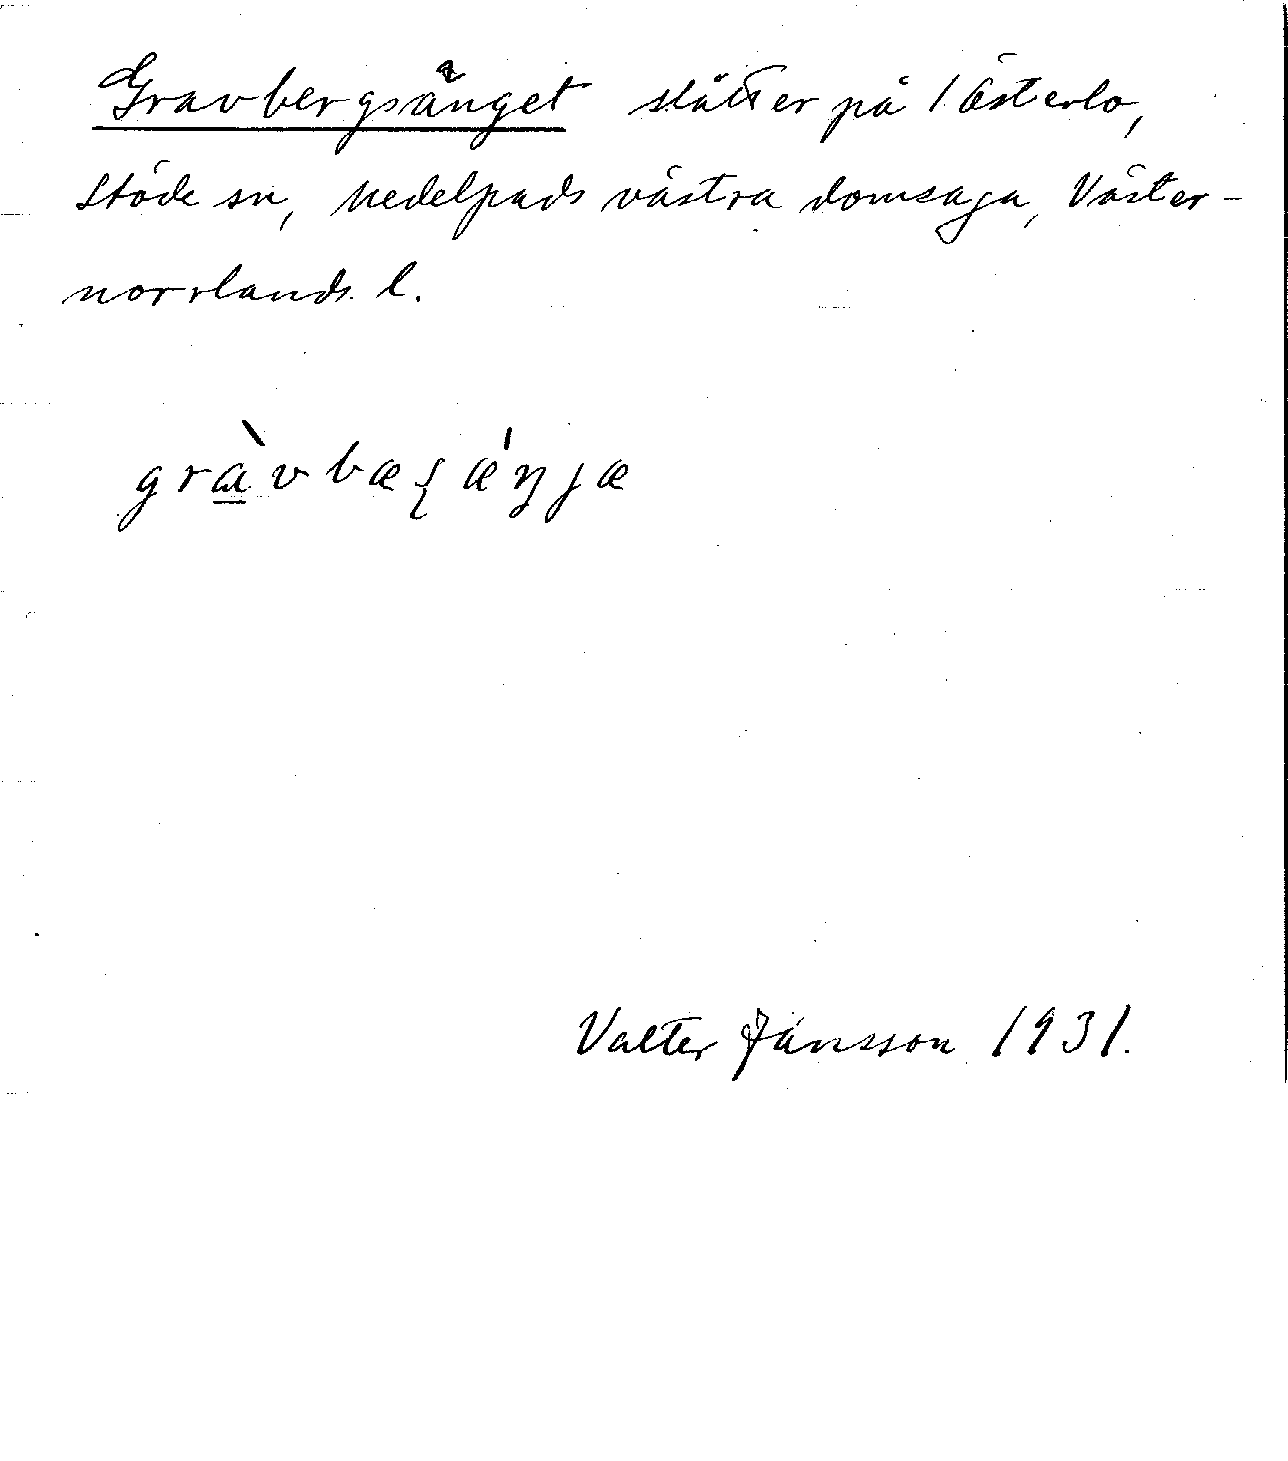 Gravbergsänget slåtter på 1 Österlo,
Stöde sn, Medelpads västra domsaga, Väster-
norrlands l.
grà̲vbæʂǽŋjæ
Valter Jansson 1931.